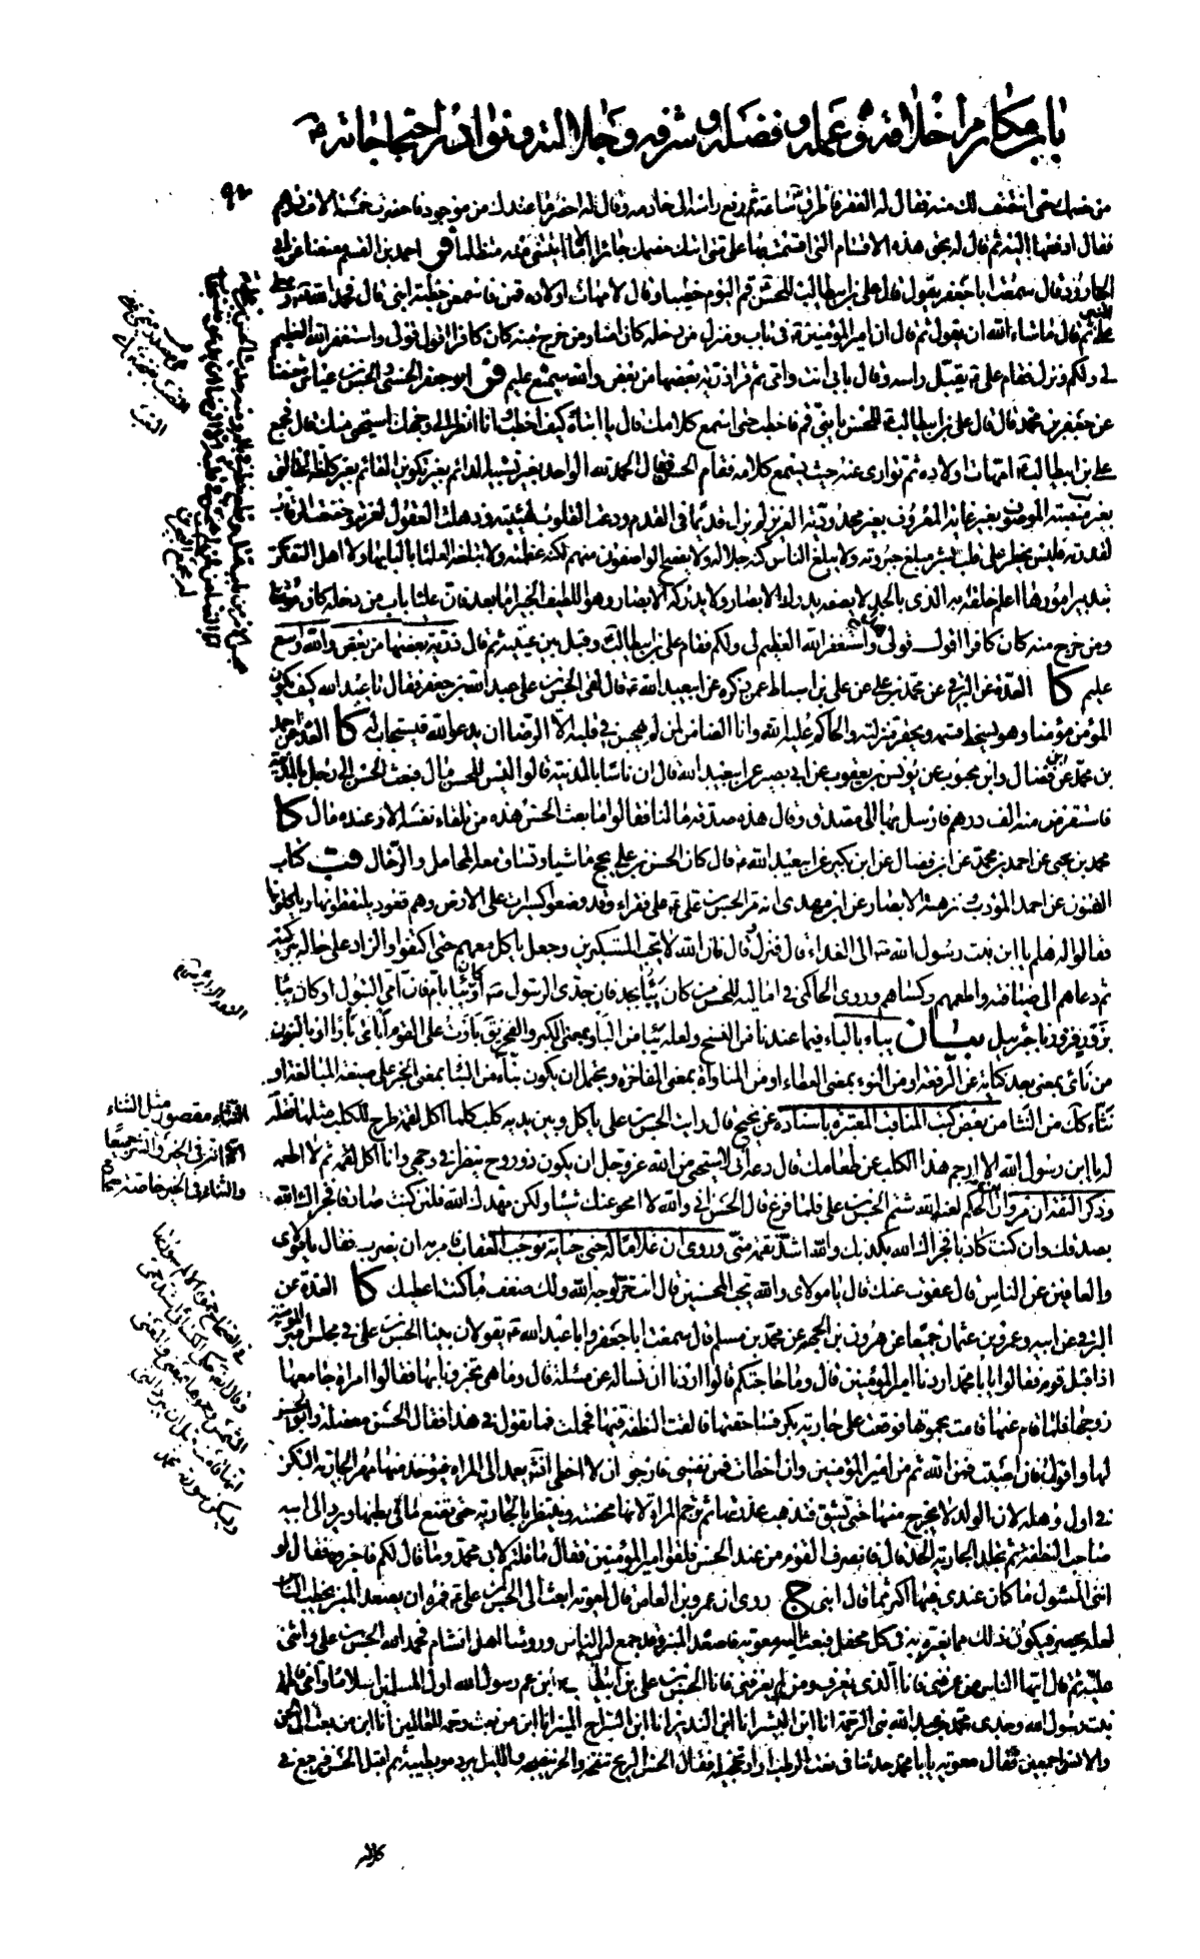 باب مكارم أخلاقه وعمله وفضله وشرفه وجلالته ونوادر احتجاجاته
٩٤
من خصمك حتى انتصف لك منه فقال له الفقر فاطرق ساعة ثم رفع راسه الى خادمه وقال له احضر ما عندك من موجود فاحضر خمسة الاف درهم
فقال ادفعها اليه ثم قال له بحق هذه الاقسام التى اقسمت بها على متى اتاك خصمك جائرا الا ما اتيتنى منه متظلما فر احمد بن القسم معنعنا عن ابى
الجارود قال سمعت ابا جعفر يقول قال على بن ابيطالب للحسن قم اليوم خطيبا وقال لامهات اولاده قمن فاسمعن خطبة ابنى قال فحمد الله تعالى وصلى على النبى
ثم قال ما شاء الله ان يقول ثم قال ان امير المؤمنين فى باب ومنزل من دخله كان امنا ومن خرج منه كان كافرا اقول قولى واستغفر الله العظيم
لى ولكم ونزل فقام على يقبل راسه وقال بابى انت وامى ثم قرا ذرية بعضها من بعض والله سميع عليم فر ابو جعفر الحسنى والحسن بن عياش معنعنا
عن جعفر بن محمد قال قال على بن ابيطالب للحسن يا بنى قم فاخطب حتى اسمع كلامك قال يا ابتاه كيف اخطب وانا انظر الى وجهك استحيى منك قال فجمع
على بن ابيطالب امهات اولاده ثم توارى عنه حيث يسمع كلامه فقام الحسن فقال الحمد لله الواحد بغير تشبيه الدائم بغير تكوين القائم بغير كلفة الخالق
بغير منصبة الموصوف بغير غاية المعروف بغير محدودية العزيز لم يزل قديما فى القدم ردعت القلوب لهيبته وذهلت العقول لعزته وخضعت الرقاب
لقدرته فليس يخطر على قلب بشر مبلغ جبروته ولا يبلغ الناس كنه جلاله ولا يفصح الواصفون منهم لكنه عظمته ولا تبلغه العلماء بالبابها ولا اهل التفكر
بتدبير امورها اعلم خلقه به الذى بالحد لا يصفه يدرك الابصار ولا يدركه الابصار وهو اللطيف الخبير اما بعد فان عليا باب من دخله كان مؤمنا
ومن خرج منه كان كافرا اقول قولى هذا واستغفر الله العظيم لى ولكم فقام على بن ابيطالب وقبل بين عينيه ثم قال ذرية بعضها من بعض والله سميع
عليم كا العدة عن البرقى عن محمد بن على عن على بن اسباط عمن ذكره عن ابيعبد الله قال لقى الحسن بن على عبد الله بن جعفر فقال يا عبد الله كيف يكون
المؤمن مؤمنا وهو يسخط قسمه ويحقر منزلته والحاكم عليه الله وانا الضامن لمن لم يهجس فى قلبه الا الرضا ان يدعو الله فيستجاب له كا العدة عن احمد
بن محمد عن ابن فضال وابن محبوب عن يونس بن يعقوب عن ابى بصير عن ابيعبد الله قال ان ناسا بالمدينة قالوا ليس للحسن مال فبعث الحسن الى رجل بالمدينة
فاستقرض منه الف درهم فارسل بها الى المصدق وقال هذه صدقة مالنا فقالوا ما بعث الحسن هذه من تلقاء نفسه الا وعنده مال كا
محمد بن يحيى عن احمد بن محمد عن ابن فضال عن ابن بكير عن ابيعبد الله قال كان الحسن بن على يحج ماشيا وتساق معه المحامل والرحال قب كتاب
الفنون عن احمد المؤدب ونزهة الابصار عن ابن مهدى انه مر الحسن بن على على فقراء وقد وضعوا كسيرات على الارض وهم قعود يلتقطونها وياكلونها
فقالوا له هلم يا ابن بنت رسول الله الى الغداء قال فنزل وقال فان الله لا يحب المستكبرين وجعل ياكل معهم حتى اكتفوا والزاد على حاله ببركته
ثم دعاهم الى ضيافته واطعمهم وكساهم وروى الحاكم فى اماليه للحسن من كان يباء بجد فان جدى الرسول او كان يباء بام فان امى البتول او كان يباء
بزور فزورنا جبرئيل بيان يباء بالباء فيما عندنا من النسخ ولعله يباء من البأو بمعنى الكبر والفخر يق بأوت على القوم ابأى بأوا او بالنون
من نأى بمعنى بعد كناية عن الرفعة او من النوء بمعنى العطاء او من المناواة بمعنى المفاخرة ويحتمل ان يكون نثاء من النثا بمعنى الخبر على صيغة المبالغة او
نثاء كك من الثناء من بعض كتب المناقب المعتبرة باسناده عن نجيح قال رايت الحسن بن على ياكل وبين يديه كلب كلما اكل لقمة طرح للكلب مثلها فقلت
له يا ابن رسول الله الا ارجم هذا الكلب عن طعامك قال دعه انى لاستحيى من الله عز وجل ان يكون ذو روح ينظر فى وجهى وانا اكل ثم لا اطعمه
وذكر الثقة ان مروان بن الحكم لعنه الله شتم الحسن بن على فلما فرغ قال الحسن انى والله لا امحو عنك شيئا ولكن مهدك الله فلئن كنت صادقا فجزاك الله
بصدقك وان كنت كاذبا فجزاك الله بكذبك والله اشد نقمة منى وروى ان غلاما له جنى جناية توجب العقاب فامر به ان يضرب فقال يا مولاى
والعافين عن الناس قال عفوت عنك قال يا مولاى والله يحب المحسنين قال انت حر لوجه الله ولك ضعف ما كنت اعطيك كا العدة عن
البرقى عن ابيه وعمرو بن عثمان جميعا عن هرون بن الجهم عن محمد بن مسلم قال سمعت ابا جعفر وابا عبد الله يقولان بينا الحسن بن على فى مجلس امير المؤمنين
اذ اقبل قوم فقالوا يا با محمد اردنا امير المؤمنين قال وما حاجتكم قالوا اردنا ان نساله عن مسئلة قال وما هى تخبرونا بها فقالوا امراة جامعها
زوجها فلما قام عنها قامت بحموتها فوقعت على جارية بكر فساحقتها فالقت النطفة فيها فحملت فما تقول فى هذا فقال الحسن معضلة وابو الحسن
لها واقول فان اصبت فمن الله ثم من امير المؤمنين وان اخطات فمن نفسى فارجو ان لا اخطى انشاء الله يعمد الى المراة فيؤخذ منها مهر الجارية البكر
فى اول وهلة لان الولد لا يخرج منها حتى تشق فتذهب عذرتها ثم ترجم المراة لانها محصنة وينتظر بالجارية حتى تضع ما فى بطنها ويرد الى ابيه
صاحب النطفة ثم تجلد الجارية الحد قال فانصرف القوم من عند الحسن فلقوا امير المؤمنين فقال ما قلتم لابى محمد وما قال لكم فاخبروه فقال لو
اننى المسئول ما كان عندى فيها اكثر مما قال ابنى ج روى ان عمرو بن العاص قال لمعوية ابعث الى الحسن بن على فمره ان يصعد المنبر يخطب الناس
لعله يحصر فيكون ذلك مما نعيره به فى كل محفل فبعث اليه معوية فاصعده المنبر وقد جمع له الناس ورؤساء اهل الشام فحمد الله الحسن بن على واثنى
عليه ثم قال ايها الناس من عرفنى فانا الذى يعرف ومن لم يعرفنى فانا الحسن بن على بن ابيطالب ابن عم رسول الله اول المسلمين اسلاما وامى فاطمة
بنت رسول الله وجدى محمد بن عبد الله نبى الرحمة انا ابن البشير انا ابن النذير انا ابن السراج المنير انا ابن من بعث رحمة للعالمين انا ابن من بعث الى الجن
والانس اجمعين فقال معوية يا ابا محمد حدثنا فى نعت الرطب اراد تخجيله فقال الحسن الريح تنفخه والحر ينضجه والليل يبرده ويطيبه ثم اقبل الحسن فرجع فى
كلامه
النثاء مقصور مثل الثناء
الا انه فى الخير والشر جميعا
والثناء فى الخير خاصة